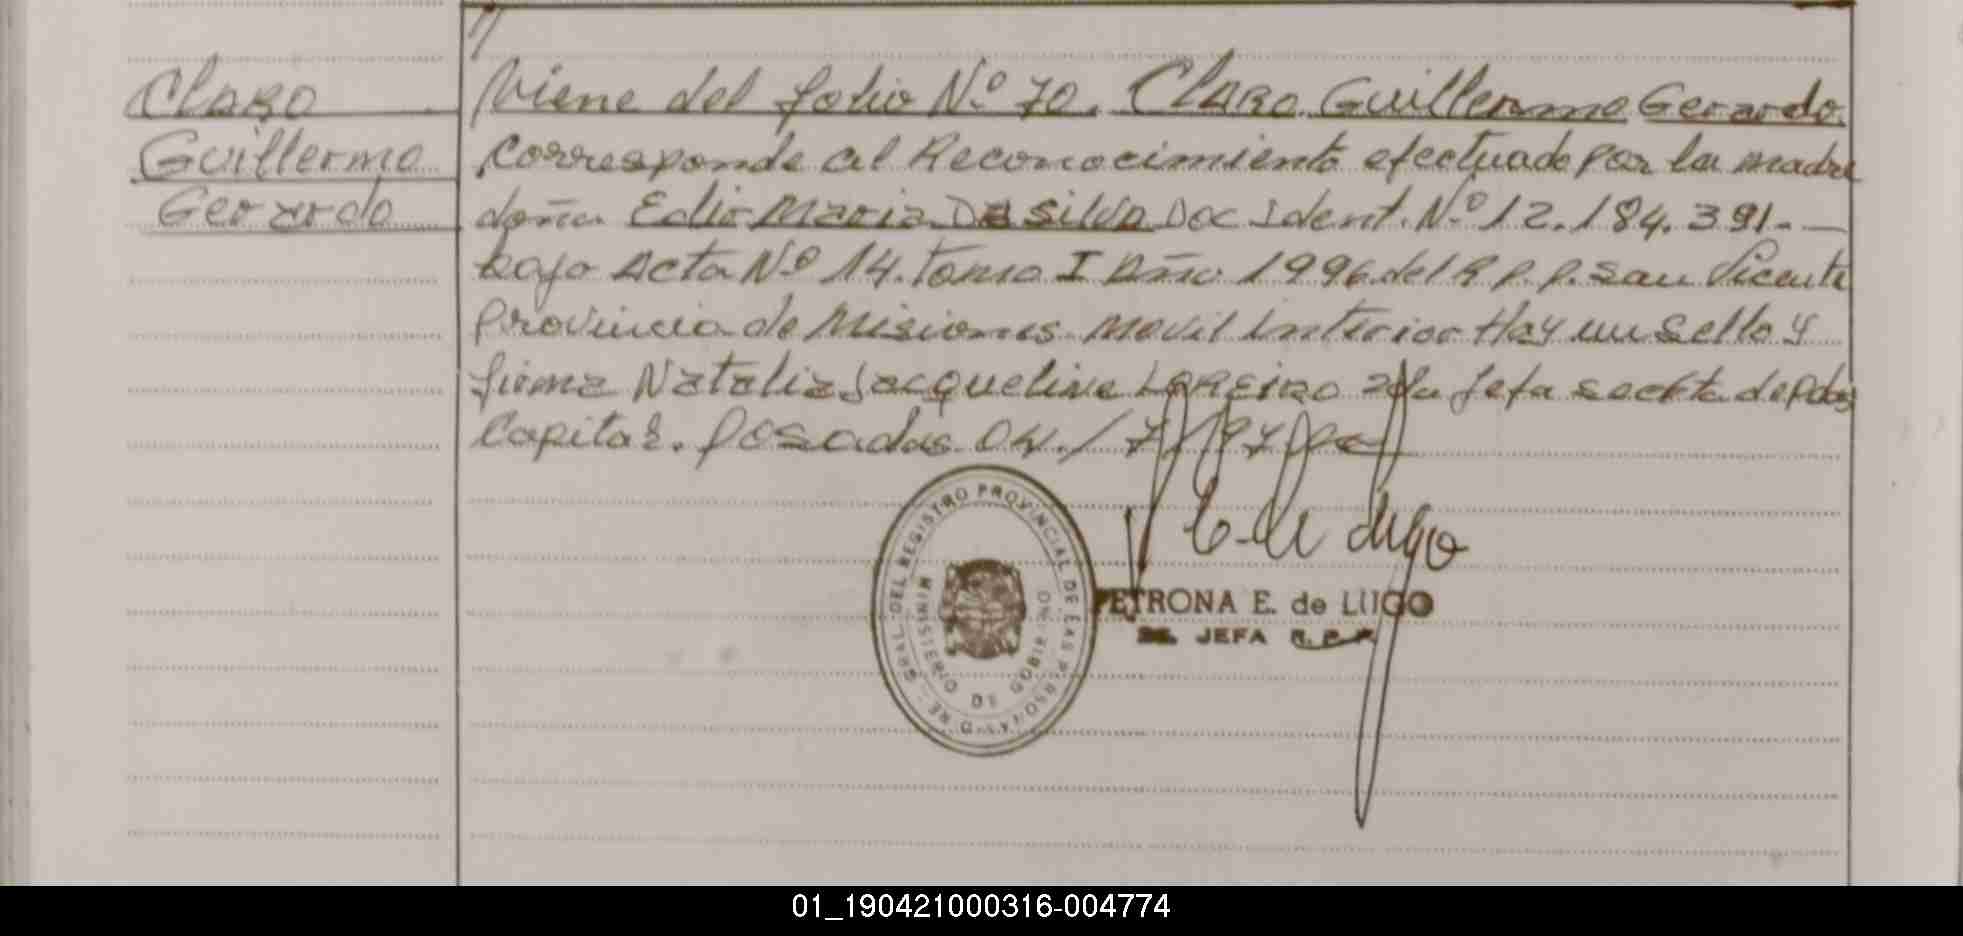 Claro
Guillermo
Gerardo
Viene del folio Nº 70. Claro Guillermo Gerardo.
Corresponde al Reconocimiento efectuado por la madre
doña Edio Maria Da silva Doc Ident. Nº 12.184.391.-
bajo Acta Nº 14. Tomo I Año 1996 del R.P.P. San Vicente
Provincia de Misiones Movil Interior Hay un sello y
firma Natalia Jacqueline Loreiro Jefa
Capital. Posadas 04/7/97
REGISTRO PROVINCIAL DE LAS PERSONAS
MINISTERIO DE GOBIERNO
PETRONA E. de LUGO
JEFA R.P.P.
01_190421000316-004774